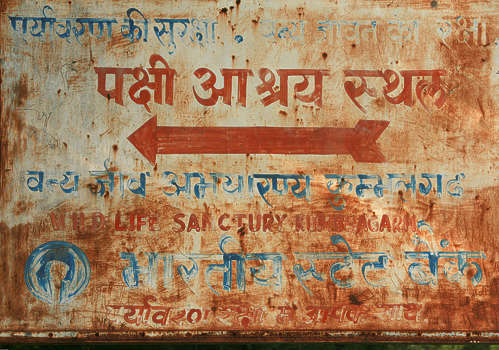 पर्यावरण की सुरक्षा . वन्य जीवन की रक्षा
पक्षी आश्रय स्थल
वन्य जीव अभयारण्य कुम्भलगढ
WILD LIFE SANCTURY KUMBALGARH
भारतीय स्टेट बैंक
पर्यावरण रक्षा में आपके साथ